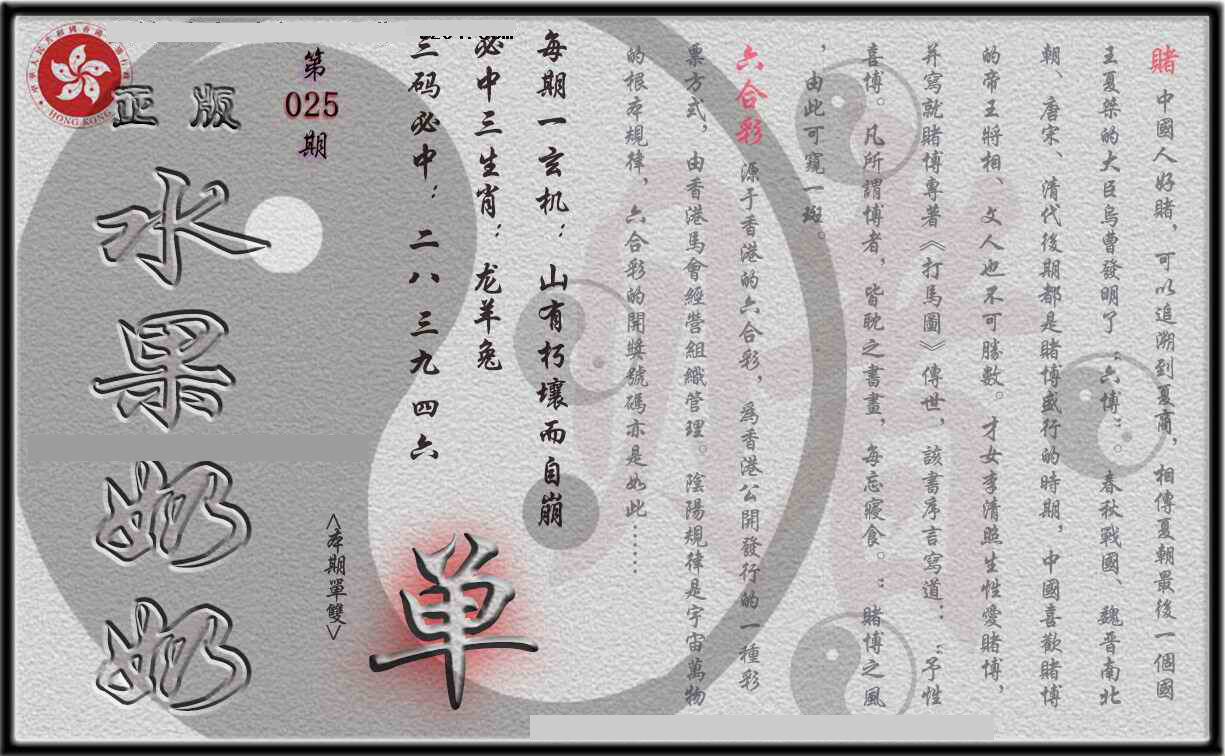 賭 中國人好賭，可以追溯到夏商，相傳夏朝最後一個國
王夏桀的大臣烏曹發明了“六博”。春秋戰國、魏晋南北
朝、唐宋、清代後期都是賭博盛行的時期，中國喜歡賭博
的帝王將相、文人也不可勝數。才女李清照生性愛賭博，
并寫就賭博專著《打馬圖》傳世，該書序言寫道：“予性
喜博。凡所謂博者，皆耽之書晝，每忘寢食。”賭博之風
，由此可窺一斑。
六合彩 源于香港的六合彩，爲香港公開發行的一種彩
票方式，由香港馬會經營組織管理。陰陽規律是宇宙萬物
的根本規律，六合彩的開獎號碼亦是如此……
每期一玄机：山有朽壤而自崩
必中三生肖：龙羊兔
三码必中：二八 三九 四六
第
025
期
正版
水果奶奶
<本期單雙>
单
HONG KONG